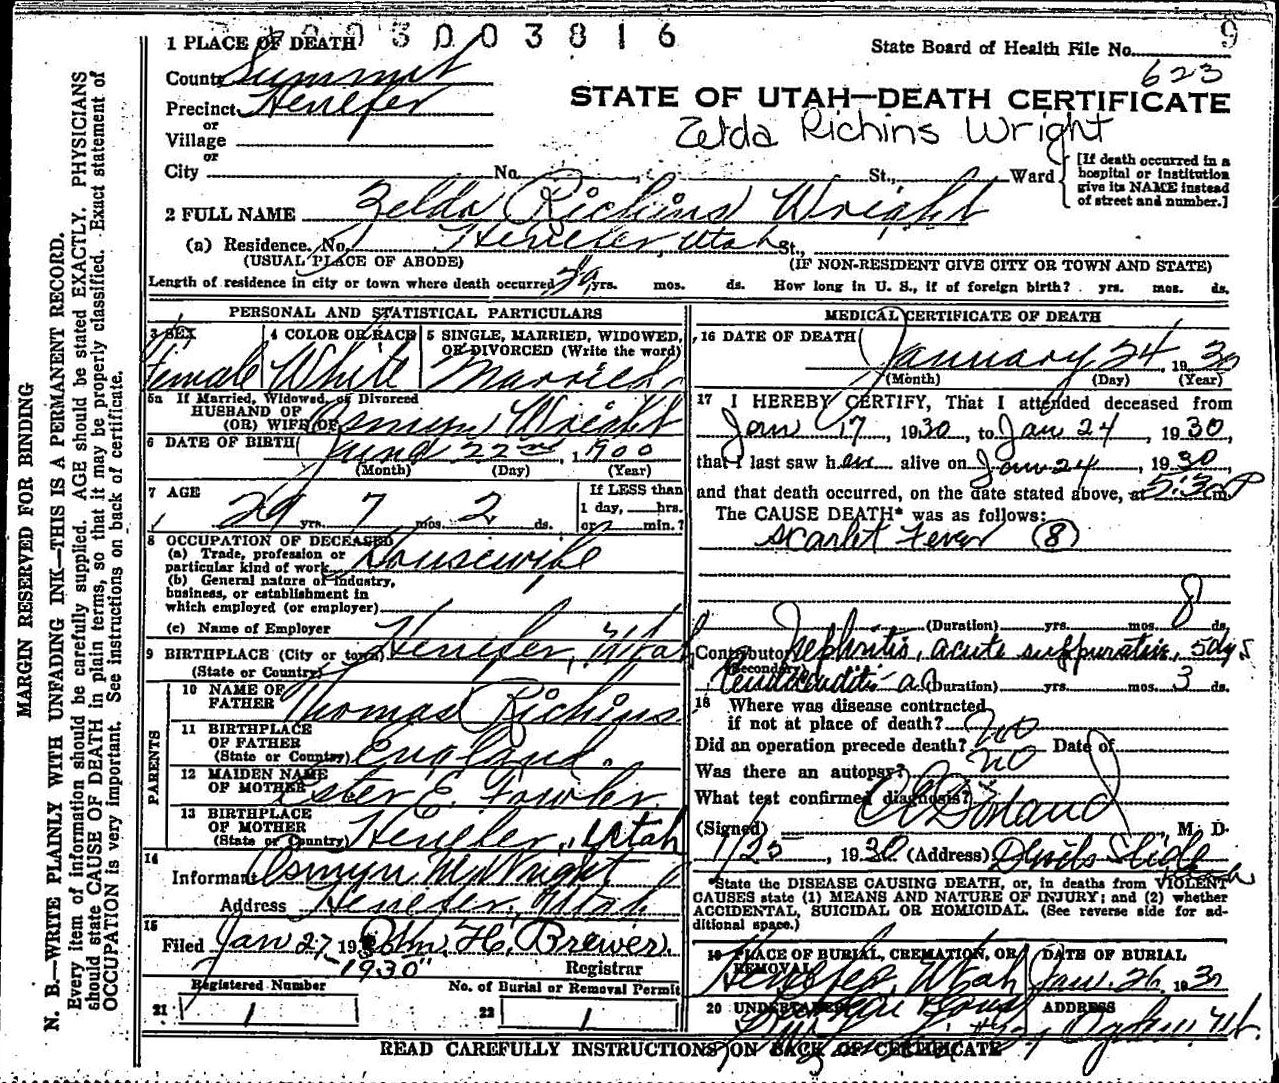 003003816
9
1 PLACE OF DEATH
State Board of Health File No.
County Summit
623
Precinct Henefer
STATE OF UTAH—DEATH CERTIFICATE
or
Village
Zelda Richins Wright
or
City No. St., Ward
[If death occurred in a
hospital or institution
give its NAME instead
of street and number.]
2 FULL NAME Zelda Richins Wright
(a) Residence. No. Henefer, Utah St.,
(USUAL PLACE OF ABODE) (IF NON-RESIDENT GIVE CITY OR TOWN AND STATE)
Length of residence in city or town where death occurred yrs. mos. ds. How long in U. S., if of foreign birth? yrs. mos. ds.
PERSONAL AND STATISTICAL PARTICULARS
3 SEX 4 COLOR OR RACE 5 SINGLE, MARRIED, WIDOWED,
OR DIVORCED (Write the word)
Female White Married
5a If Married, Widowed, or Divorced
HUSBAND OF
(OR) WIFE OF Osmyn Wright
6 DATE OF BIRTH June 22nd, 1900
(Month) (Day) (Year)
7 AGE
29 yrs. 7 mos. 2 ds.
If LESS than
1 day, hrs.
or min.?
8 OCCUPATION OF DECEASED
(a) Trade, profession or
particular kind of work Housewife
(b) General nature of industry,
business, or establishment in
which employed (or employer)
(c) Name of Employer
9 BIRTHPLACE (City or town) Henefer, Utah
(State or Country)
PARENTS
10 NAME OF
FATHER Thomas Richins
11 BIRTHPLACE
OF FATHER
(State or Country) England.
12 MAIDEN NAME
OF MOTHER Ester E. Fowler
13 BIRTHPLACE
OF MOTHER
(State or Country) Henefer, Utah
14
Informant Osmyn M Wright
Address Henefer, Utah
15
Filed Jan 27, 19 Wm. H. Brewer.
1930 Registrar
Registered Number No. of Burial or Removal Permit
21 1 22 1
MEDICAL CERTIFICATE OF DEATH
16 DATE OF DEATH
January 24 1930
(Month) (Day) (Year)
17 I HEREBY CERTIFY, That I attended deceased from
Jan 17, 1930, to Jan 24, 1930,
that I last saw her alive on Jan 24, 1930
and that death occurred, on the date stated above, at 5:30 P m.
The CAUSE DEATH* was as follows:
Scarlet Fever (8)
(Duration) yrs. mos. 8 ds.
Contributory Nephritis, acute suppurative, 5 dys
(Secondary)
(Duration) yrs. mos. 3 ds.
18 Where was disease contracted
if not at place of death?
Did an operation precede death? no Date of
Was there an autopsy? no
What test confirmed diagnosis?
(Signed) M. D.
1/25, 1930 (Address) Devils Slide
Utah
*State the DISEASE CAUSING DEATH, or, in deaths from VIOLENT
CAUSES state (1) MEANS AND NATURE OF INJURY; and (2) whether
ACCIDENTAL, SUICIDAL OR HOMICIDAL. (See reverse side for ad-
ditional space.)
19 PLACE OF BURIAL, CREMATION, OR DATE OF BURIAL
REMOVAL
Henefer, Utah Jan. 26, 1930
20 UNDERTAKER ADDRESS
Ogden, Ut.
READ CAREFULLY INSTRUCTIONS ON BACK OF CERTIFICATE
MARGIN RESERVED FOR BINDING
N. B.—WRITE PLAINLY WITH UNFADING INK—THIS IS A PERMANENT RECORD.
Every item of information should be carefully supplied. AGE should be stated EXACTLY. PHYSICIANS
should state CAUSE OF DEATH in plain terms, so that it may be properly classified. Exact statement of
OCCUPATION is very important. See instructions on back of certificate.